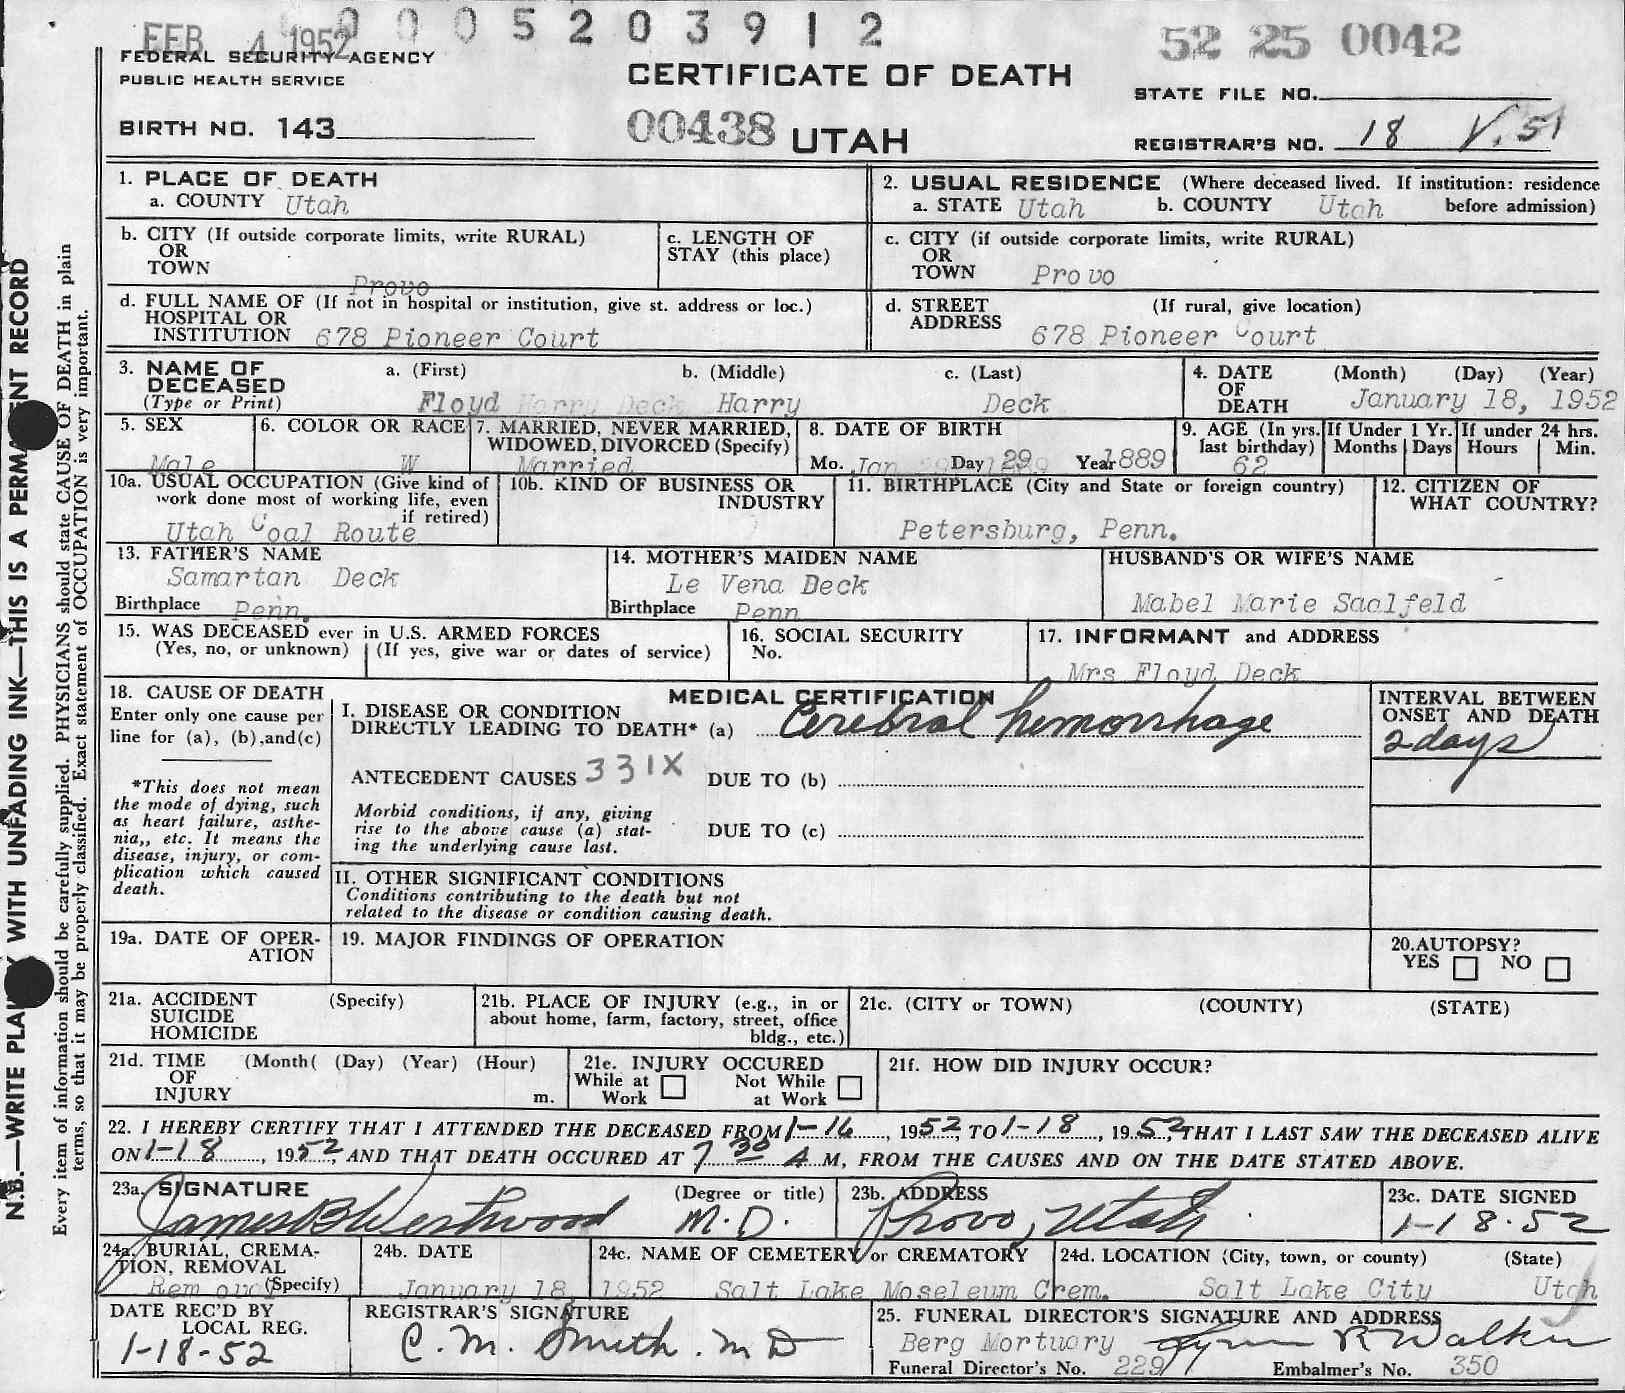 FEB 4 1952
0005203912
52 25 0042
FEDERAL SECURITY AGENCY
PUBLIC HEALTH SERVICE
CERTIFICATE OF DEATH
STATE FILE NO.
BIRTH NO. 143
00438 UTAH
REGISTRAR'S NO. 18 V.51
N.B.—WRITE PLAINLY WITH UNFADING INK—THIS IS A PERMANENT RECORD
Every item of information should be carefully supplied. PHYSICIANS should state CAUSE OF DEATH in plain
terms, so that it may be properly classified. Exact statement of OCCUPATION is very important.
1. PLACE OF DEATH
a. COUNTY Utah
2. USUAL RESIDENCE (Where deceased lived. If institution: residence
a. STATE Utah b. COUNTY Utah before admission)
b. CITY (If outside corporate limits, write RURAL)
OR
TOWN
Provo
c. LENGTH OF
STAY (this place)
c. CITY (if outside corporate limits, write RURAL)
OR
TOWN Provo
d. FULL NAME OF (If not in hospital or institution, give st. address or loc.)
HOSPITAL OR
INSTITUTION 678 Pioneer Court
d. STREET (If rural, give location)
ADDRESS 678 Pioneer Court
3. NAME OF a. (First) b. (Middle) c. (Last)
DECEASED
(Type or Print) Floyd Harry Deck Harry Deck
4. DATE (Month) (Day) (Year)
OF
DEATH January 18, 1952
5. SEX
Male
6. COLOR OR RACE
W
7. MARRIED, NEVER MARRIED,
WIDOWED, DIVORCED (Specify)
Married
8. DATE OF BIRTH
Mo. Jan Day 29 Year 1889
9. AGE (In yrs.
last birthday)
62
If Under 1 Yr.
Months Days
If under 24 hrs.
Hours Min.
10a. USUAL OCCUPATION (Give kind of
work done most of working life, even
if retired)
Utah Coal Route
10b. KIND OF BUSINESS OR
INDUSTRY
11. BIRTHPLACE (City and State or foreign country)
Petersburg, Penn.
12. CITIZEN OF
WHAT COUNTRY?
13. FATHER'S NAME
Samartan Deck
Birthplace Penn.
14. MOTHER'S MAIDEN NAME
Le Vena Deck
Birthplace Penn
HUSBAND'S OR WIFE'S NAME
Mabel Marie Saalfeld
15. WAS DECEASED ever in U.S. ARMED FORCES
(Yes, no, or unknown) (If yes, give war or dates of service)
16. SOCIAL SECURITY
No.
17. INFORMANT and ADDRESS
Mrs Floyd Deck
18. CAUSE OF DEATH
Enter only one cause per
line for (a), (b), and (c)
*This does not mean
the mode of dying, such
as heart failure, asthe-
nia,, etc. It means the
disease, injury, or com-
plication which caused
death.
MEDICAL CERTIFICATION
I. DISEASE OR CONDITION
DIRECTLY LEADING TO DEATH* (a) Cerebral hemorrhage
ANTECEDENT CAUSES 331X DUE TO (b)
Morbid conditions, if any, giving
rise to the above cause (a) stat-
ing the underlying cause last.
DUE TO (c)
II. OTHER SIGNIFICANT CONDITIONS
Conditions contributing to the death but not
related to the disease or condition causing death.
INTERVAL BETWEEN
ONSET AND DEATH
2 days
19a. DATE OF OPER-
ATION
19. MAJOR FINDINGS OF OPERATION
20. AUTOPSY?
YES NO
21a. ACCIDENT (Specify)
SUICIDE
HOMICIDE
21b. PLACE OF INJURY (e.g., in or
about home, farm, factory, street, office
bldg., etc.)
21c. (CITY or TOWN) (COUNTY) (STATE)
21d. TIME (Month( (Day) (Year) (Hour)
OF
INJURY m.
21e. INJURY OCCURED
While at Not While
Work at Work
21f. HOW DID INJURY OCCUR?
22. I HEREBY CERTIFY THAT I ATTENDED THE DECEASED FROM 1-16, 1952, TO 1-18, 1952, THAT I LAST SAW THE DECEASED ALIVE
ON 1-18, 1952, AND THAT DEATH OCCURED AT 7 30 A M., FROM THE CAUSES AND ON THE DATE STATED ABOVE.
23a. SIGNATURE (Degree or title)
James B Westwood M.D.
23b. ADDRESS
Provo, Utah
23c. DATE SIGNED
1-18-52
24a. BURIAL, CREMA-
TION, REMOVAL
Removal (Specify)
24b. DATE
January 18, 1952
24c. NAME OF CEMETERY or CREMATORY
Salt Lake Moseleum Crem.
24d. LOCATION (City, town, or county) (State)
Salt Lake City Utah
DATE REC'D BY
LOCAL REG.
1-18-52
REGISTRAR'S SIGNATURE
C. M. Smith. M D
25. FUNERAL DIRECTOR'S SIGNATURE AND ADDRESS
Berg Mortuary Lynn R Walker
Funeral Director's No. 229 Embalmer's No. 350